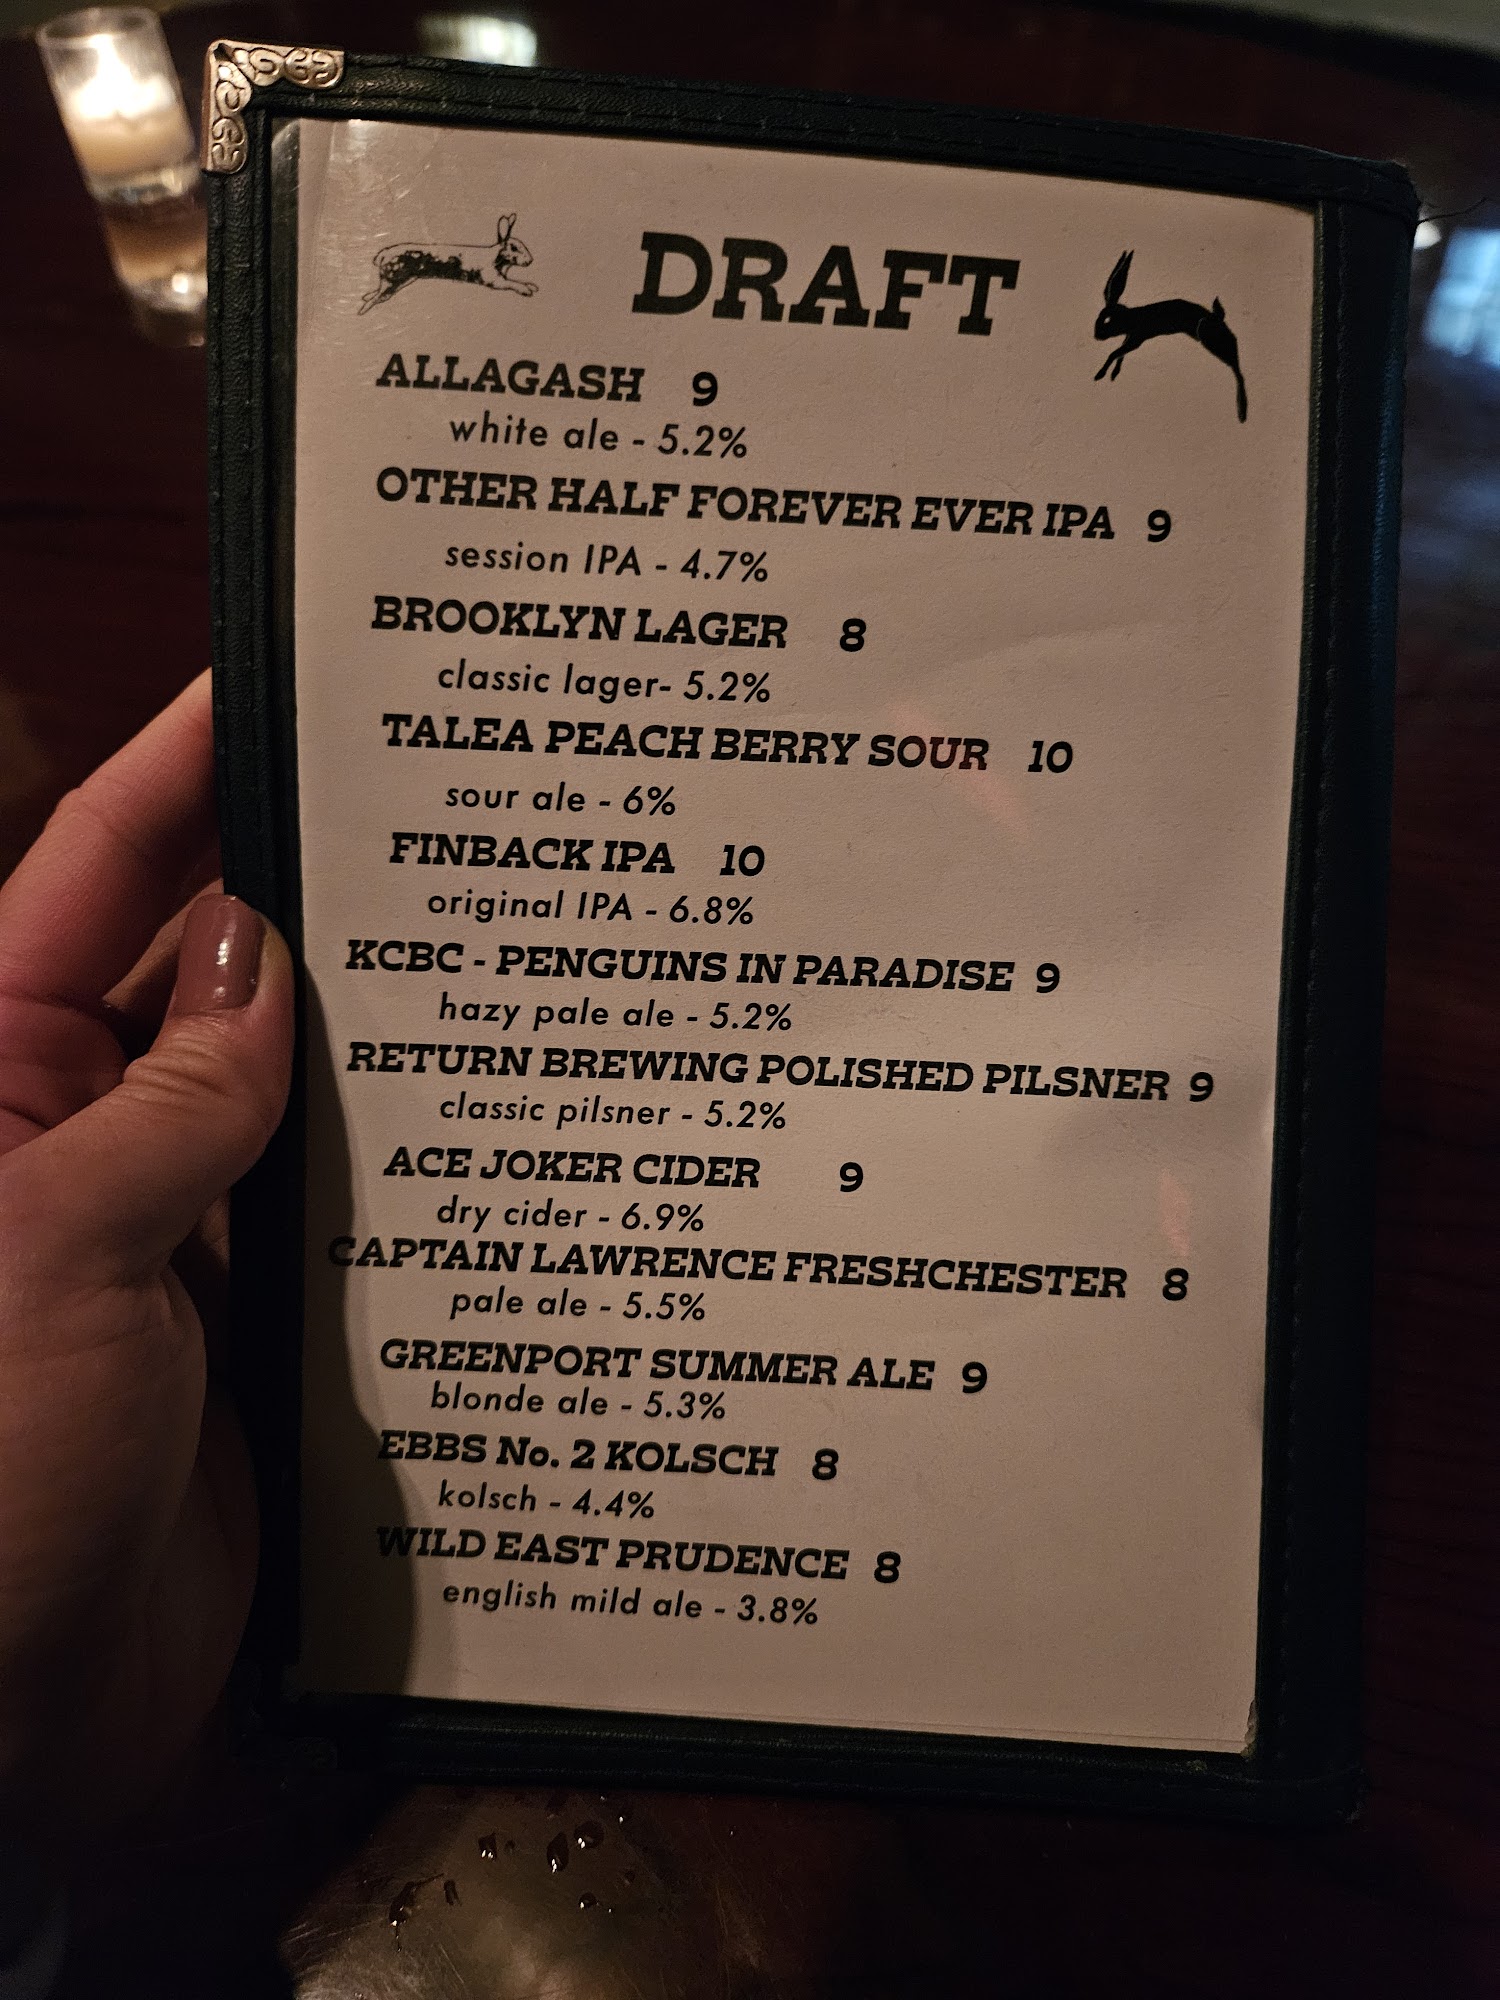 DRAFT
ALLAGASH 9
white ale - 5.2%
OTHER HALF FOREVER EVER IPA 9
session IPA - 4.7%
BROOKLYN LAGER 8
classic lager- 5.2%
TALEA PEACH BERRY SOUR 10
sour ale - 6%
FINBACK IPA 10
original IPA - 6.8%
KCBC - PENGUINS IN PARADISE 9
hazy pale ale - 5.2%
RETURN BREWING POLISHED PILSNER 9
classic pilsner - 5.2%
ACE JOKER CIDER 9
dry cider - 6.9%
CAPTAIN LAWRENCE FRESHCHESTER 8
pale ale - 5.5%
GREENPORT SUMMER ALE 9
blonde ale - 5.3%
EBBS No. 2 KOLSCH 8
kolsch - 4.4%
WILD EAST PRUDENCE 8
english mild ale - 3.8%